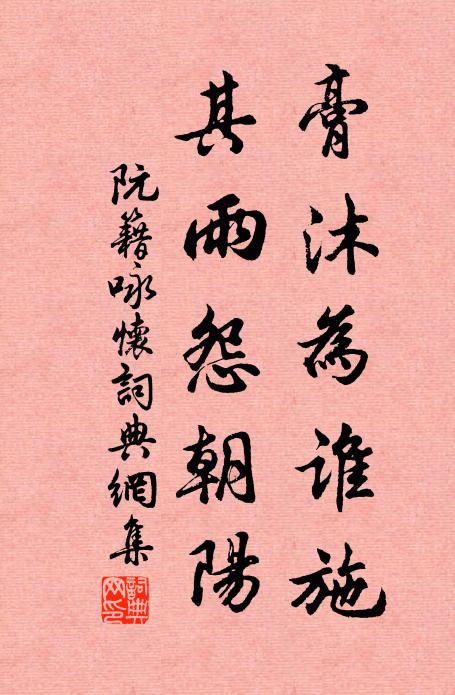 膏沐為誰施
其雨怨朝陽
阮籍咏懷詞典網集
詞典網印